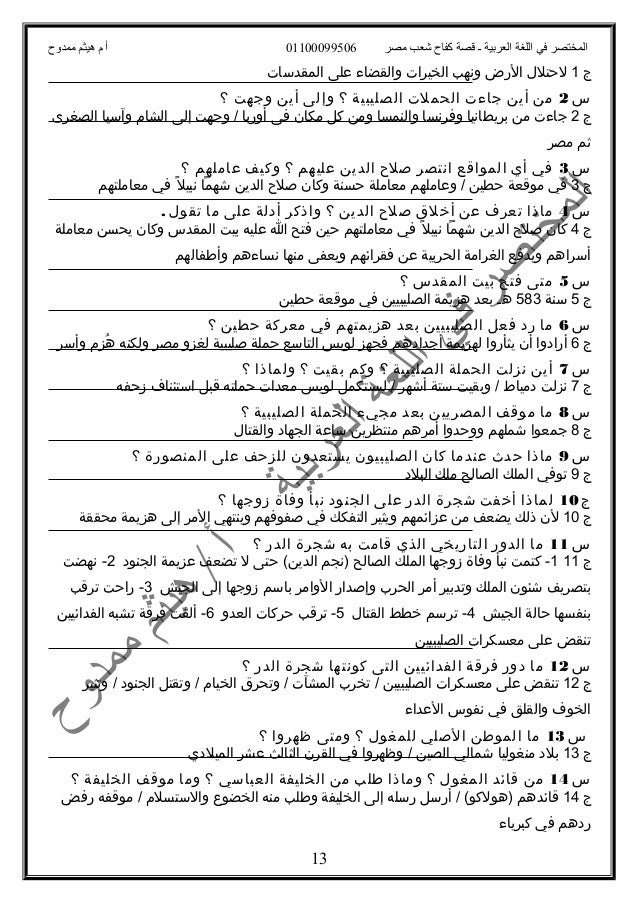 المختصر في اللغة العربية ـ قصة كفاح شعب مصر 01100099506 أ م هيثم ممدوح
ج 1 لاحتلال الأرض ونهب الخيرات والقضاء على المقدسات
س 2 من أين جاءت الحملات الصليبية ؟ وإلى أين وجهت ؟
ج 2 جاءت من بريطانيا وفرنسا والنمسا ومن كل مكان في أوربا / وجهت إلى الشام وآسيا الصغرى
ثم مصر
س 3 في أي المواقع انتصر صلاح الدين عليهم ؟ وكيف عاملهم ؟
ج 3 في موقعة حطين / وعاملهم معاملة حسنة وكان صلاح الدين شهمًا نبيلاً في معاملتهم
س 4 ماذا تعرف عن أخلاق صلاح الدين ؟ واذكر أدلة على ما تقول .
ج 4 كان صلاح الدين شهمًا نبيلاً في معاملتهم حين فتح الله عليه بيت المقدس وكان يحسن معاملة
أسراهم ويدفع الغرامة الحربية عن فقرائهم ويعفى منها نساءهم وأطفالهم
س 5 متى فتح بيت المقدس ؟
ج 5 سنة 583 هـ بعد هزيمة الصليبيين في موقعة حطين
س 6 ما رد فعل الصليبيين بعد هزيمتهم في معركة حطين ؟
ج 6 أرادوا أن يثأروا لهزيمة أجدادهم فجهز لويس التاسع حملة صليبية لغزو مصر ولكنه هُزم وأسر
س 7 أين نزلت الحملة الصليبية ؟ وكم بقيت ؟ ولماذا ؟
ج 7 نزلت دمياط / وبقيت ستة أشهر / ليستكمل لويس معدات حملته قبل استئناف زحفه
س 8 ما موقف المصريين بعد مجيء الحملة الصليبية ؟
ج 8 جمعوا شملهم ووحدوا أمرهم منتظرين ساعة الجهاد والقتال
س 9 ماذا حدث عندما كان الصليبيون يستعدون للزحف على المنصورة ؟
ج 9 توفي الملك الصالح ملك البلاد
ج 10 لماذا أخفت شجرة الدر على الجنود نبأ وفاة زوجها ؟
ج 10 لأن ذلك يضعف من عزائمهم ويثير التفكك في صفوفهم وينتهي الأمر إلى هزيمة محققة
س 11 ما الدور التاريخي الذي قامت به شجرة الدر ؟
ج 11 1- كتمت نبأ وفاة زوجها الملك الصالح (نجم الدين) حتى لا تضعف عزيمة الجنود 2- نهضت
بتصريف شئون الملك وتدبير أمر الحرب وإصدار الأوامر باسم زوجها إلى الجيش 3- راحت ترقب
بنفسها حالة الجيش 4- ترسم خطط القتال 5- ترقب حركات العدو 6- ألفت فرقة تشبه الفدائيين
تنقض على معسكرات الصليبيين
س 12 ما دور فرقة الفدائيين التى كونتها شجرة الدر ؟
ج 12 تنقض على معسكرات الصليبيين / تخرب المنشآت / وتحرق الخيام / وتقتل الجنود / وتثير
الخوف والقلق في نفوس الأعداء
س 13 ما الموطن الأصلي للمغول ؟ ومتى ظهروا ؟
ج 13 بلاد منغوليا شمالي الصين / وظهروا في القرن الثالث عشر الميلادي
س 14 من قائد المغول ؟ وماذا طلب من الخليفة العباسي ؟ وما موقف الخليفة ؟
ج 14 قائدهم (هولاكو) / أرسل رسله إلى الخليفة وطلب منه الخضوع والاستسلام / موقفه رفض
ردهم في كبرياء
المختصر في اللغة العربية أ / هيثم ممدوح
13